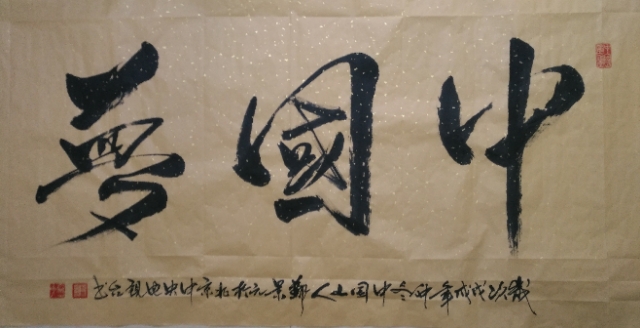 中國夢
歲次戊戌年秋冬中國山人鄭景元於北京中央电視台書